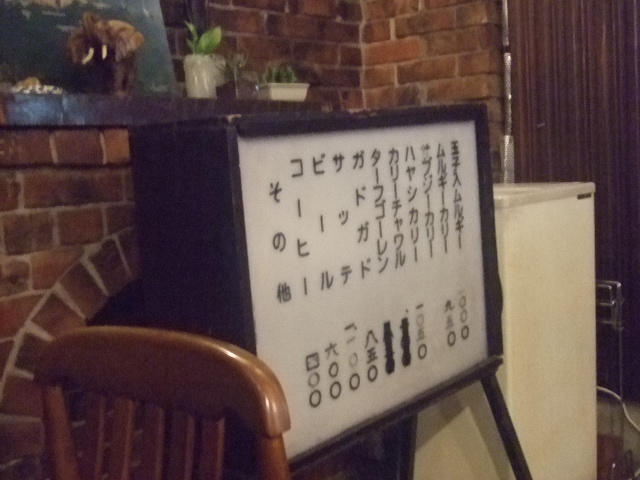 玉子入ムルギー 一〇〇〇
ムルギーカリー 九五〇
サブジーカリー 一〇五〇
ハヤシカリー
カリーチャワル
ターフゴーレン 八五〇
ガドガド
サッテ 六〇〇
ビール 四〇〇
コーヒー
その他